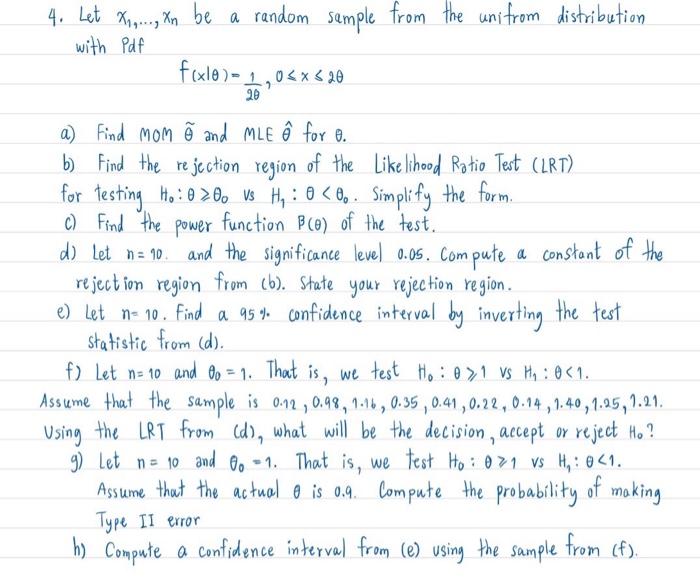 4. Let x₁,...,xn be a random sample from the unifrom distribution
with Pdf
f(x|θ) = 1/2θ, 0 ≤ x ≤ 2θ
a) Find MOM θ̃ and MLE θ̂ for θ.
b) Find the rejection region of the Likelihood Ratio Test (LRT)
for testing H₀: θ ≥ θ₀ vs H₁: θ < θ₀. Simplify the form.
c) Find the power function β(θ) of the test.
d) Let n = 10. and the significance level 0.05. Compute a constant of the
rejection region from (b). State your rejection region.
e) Let n = 10. Find a 95% confidence interval by inverting the test
statistic from (d).
f) Let n = 10 and θ₀ = 1. That is, we test H₀: θ ≥ 1 vs H₁: θ < 1.
Assume that the sample is 0.12, 0.98, 1.16, 0.35, 0.41, 0.22, 0.14, 1.40, 1.25, 1.21.
Using the LRT from (d), what will be the decision, accept or reject H₀?
g) Let n = 10 and θ₀ = 1. That is, we test H₀: θ ≥ 1 vs H₁: θ < 1.
Assume that the actual θ is 0.9. Compute the probability of making
Type II error
h) Compute a confidence interval from (e) using the sample from (f).